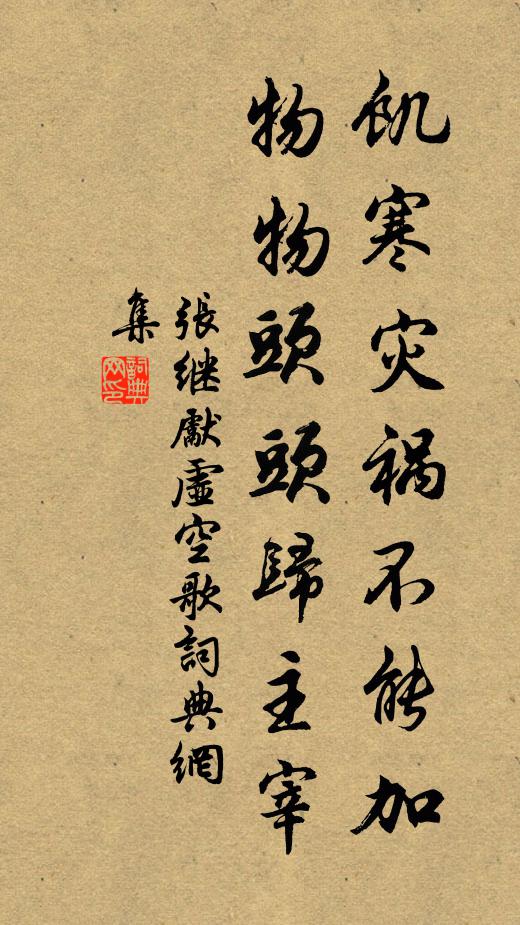 飢寒灾禍不能加
物物頭頭歸主宰
張继獻虛空歌詞典網
集
詞典
网印